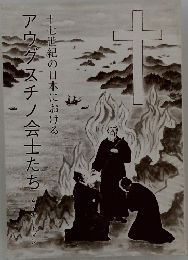 十七世紀の日本における
アウグスチノ会士たち